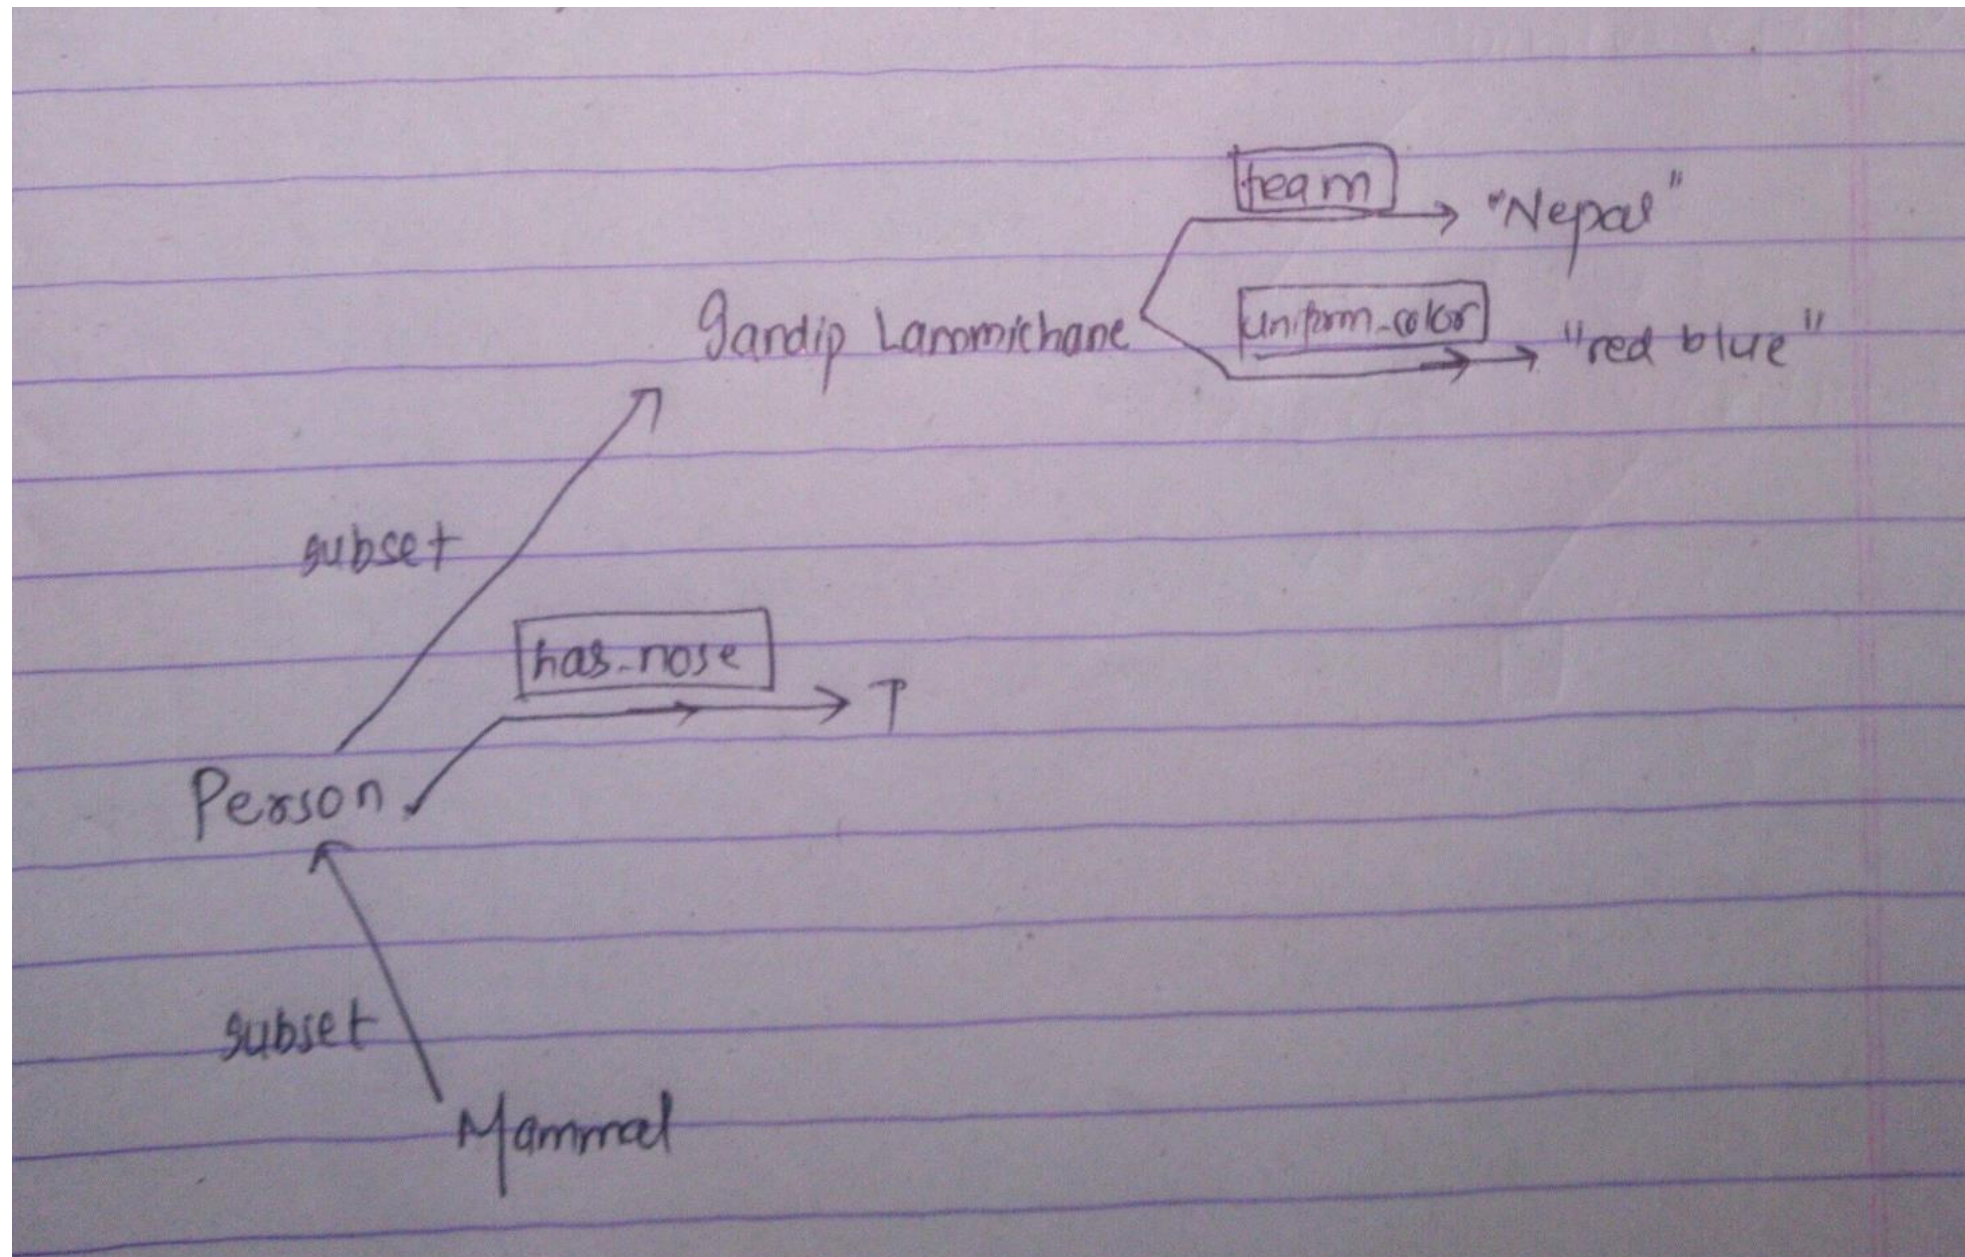 team
"Nepal"
Sandip Lammichane
uniform_color
"red blue"
subset
has_nose
T
Person
subset
Mammal